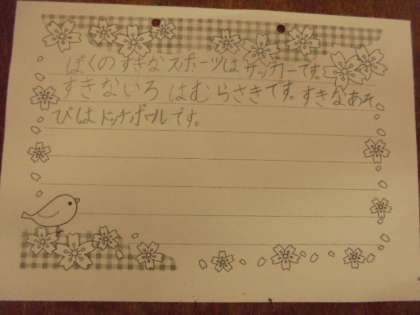 ぼくのすきなスポーツはサッカーです。
すきないろはむらさきです。すきなあそ
びはドッヂボールです。